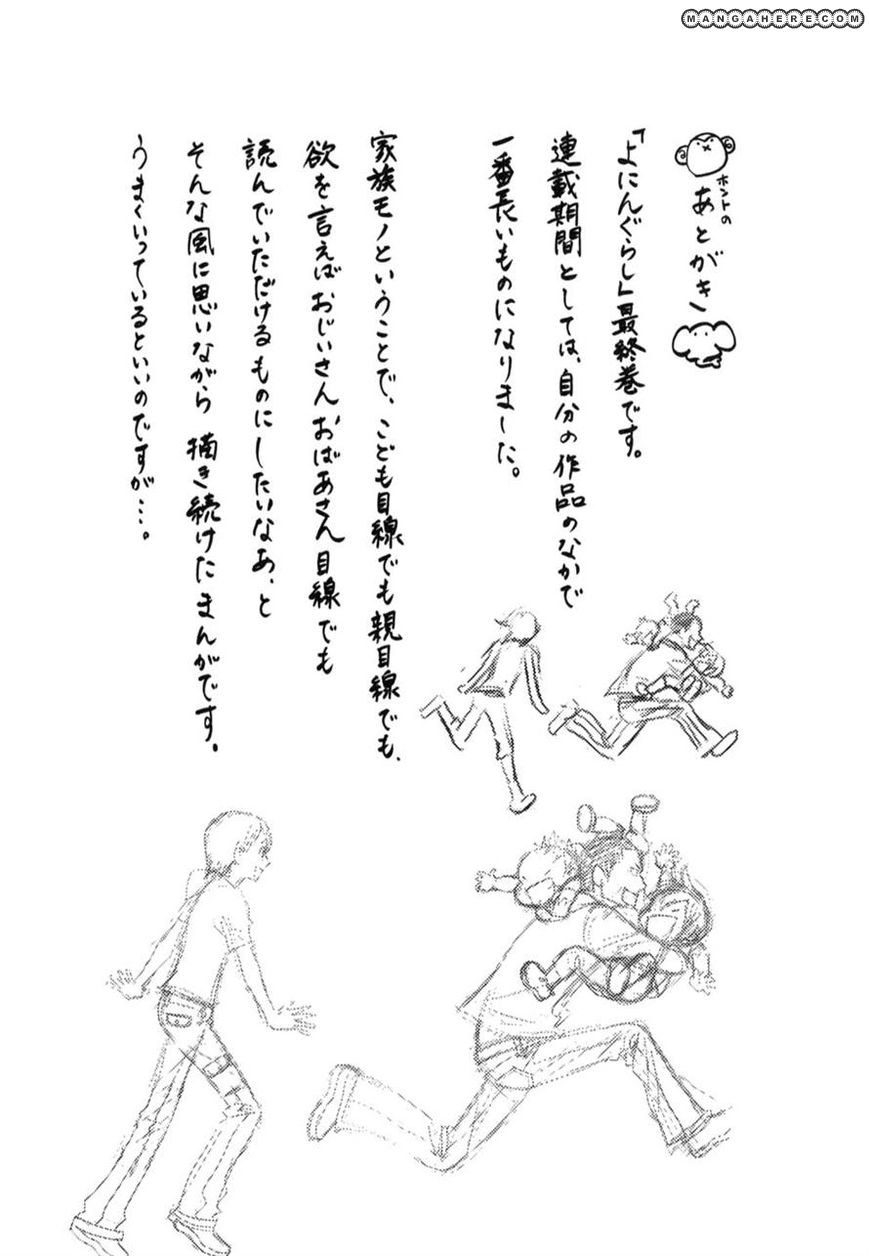 MANGAHERE.COM
ホントの
あとがき
「よにんぐらし」最終巻です。
連載期間としては、自分の作品のなかで
一番長いものになりました。
家族モノということで、こども目線でも親目線でも、
欲を言えばおじいさんおばあさん目線でも
読んでいただけるものにしたいなあ、と
そんな風に思いながら 描き続けたまんがです。
うまくいっているといいのですが…。